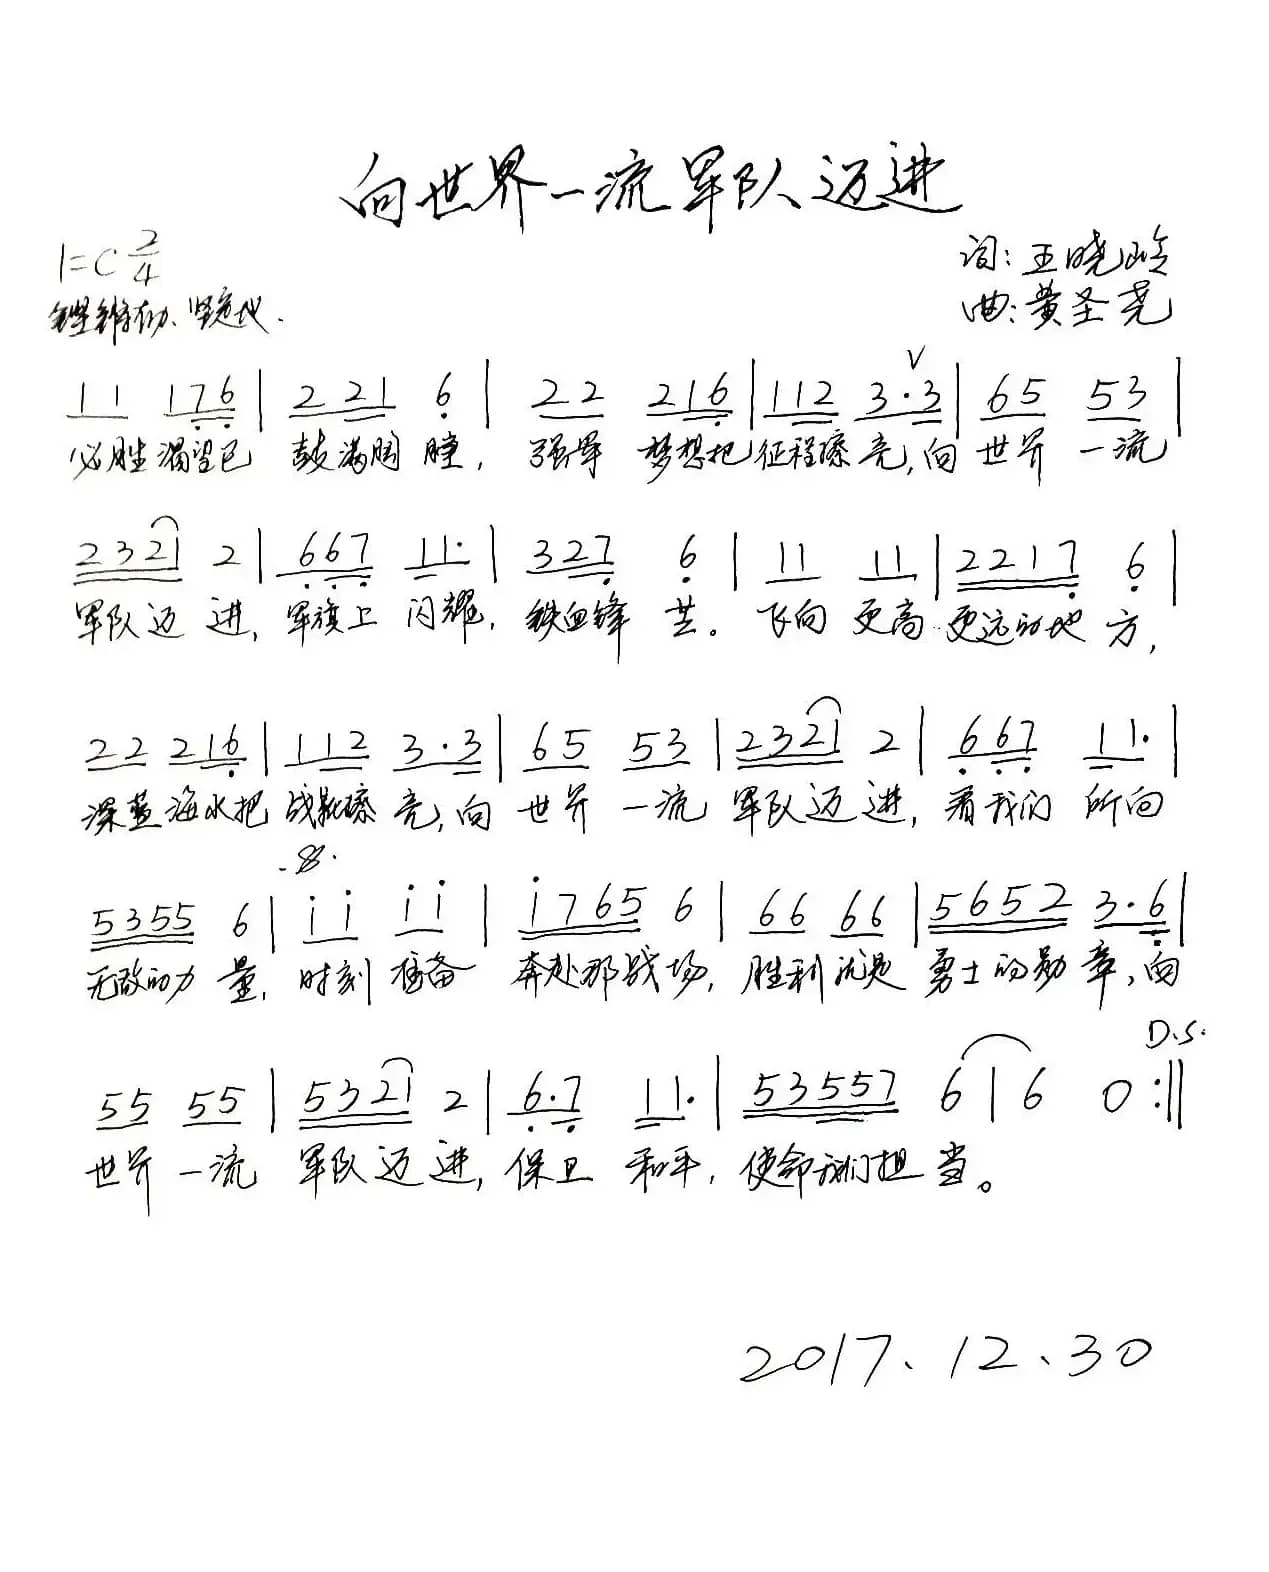 向世界一流军队迈进
1=C 2/4
词:王晓岭
铿锵有力、坚定地.
曲:黄圣尧
V
11 176 | 2 21 6 | 22 216 | 112 3·3 | 65 53 |
必胜渴望已 鼓满胸膛, 强军 梦想把征程擦亮,向 世界 一流
2321 2 | 667 11· | 327 6 | 11 11 | 2217 6 |
军队迈 进, 军旗上 闪耀, 铁血锋 芒。 飞向 更高 更远的地 方,
22 216 | 112 3·3 | 65 53 | 2321 2 | 667 11· |
深蓝 海水把 战靴擦 亮,向 世界 一流 军队迈 进, 看我们 所向
𝄋
5355 6 | i i i i | i765 6 | 66 66 | 5652 3·6 |
无敌的力 量, 时刻 准备 奔赴那战场, 胜利就是 勇士的勋 章,向
D.S.
55 55 | 5321 2 | 6·7 11· | 53557 6 | 6 0 :||
世界 一流 军队迈 进, 保卫 和平, 使命我们担 当。
2017.12.30